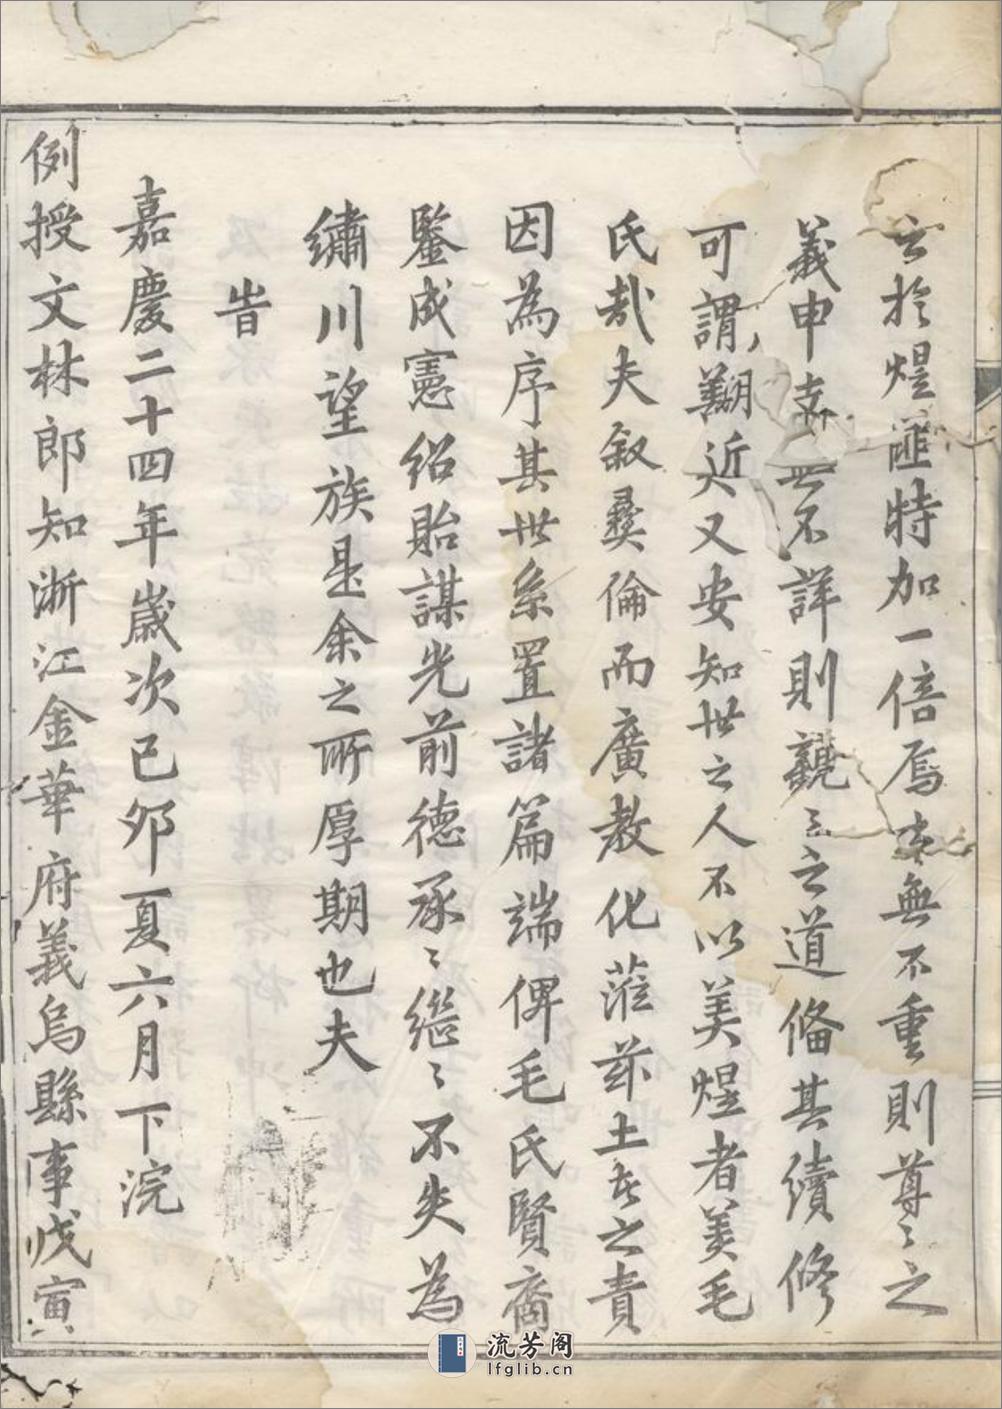 云於煜誼特加一倍焉夫無不重則尊〻之
義申夫無不詳則親〻之道備其續修
可謂翽近又安知世之人不以美煜者美毛
氏哉夫叙彜倫而廣教化蒞茲土者之責
因為序其世系置諸篇端俾毛氏賢裔
鑒成憲紹貽謀光前德承〻繼〻不失為
繡川望族是余之所厚期也夫
旹
嘉慶二十四年歲次己夘夏六月下浣
例授文林郎知浙江金華府義烏縣事戊寅
流芳阁
lfglib.cn